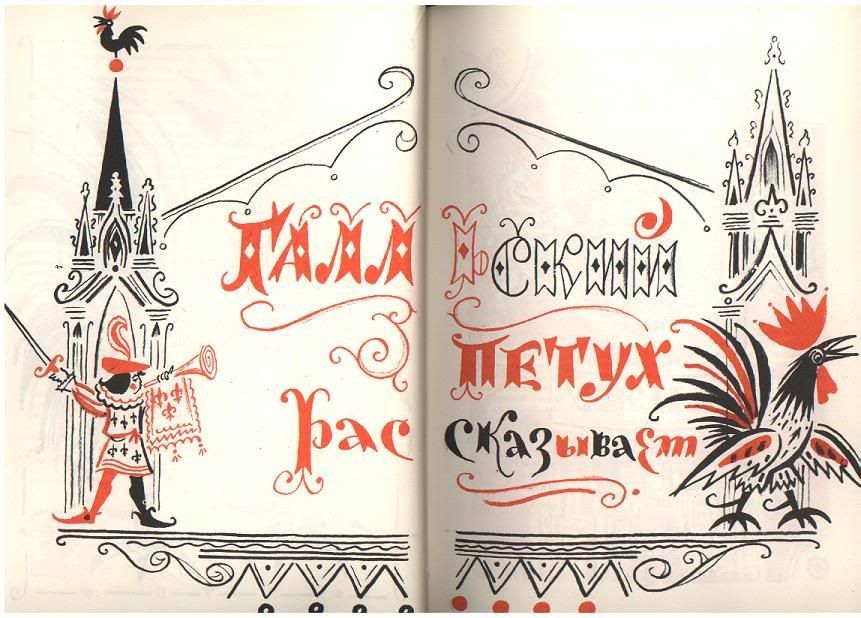 ГАЛЛЬСКИЙ
ПЕТУХ
рассказывает